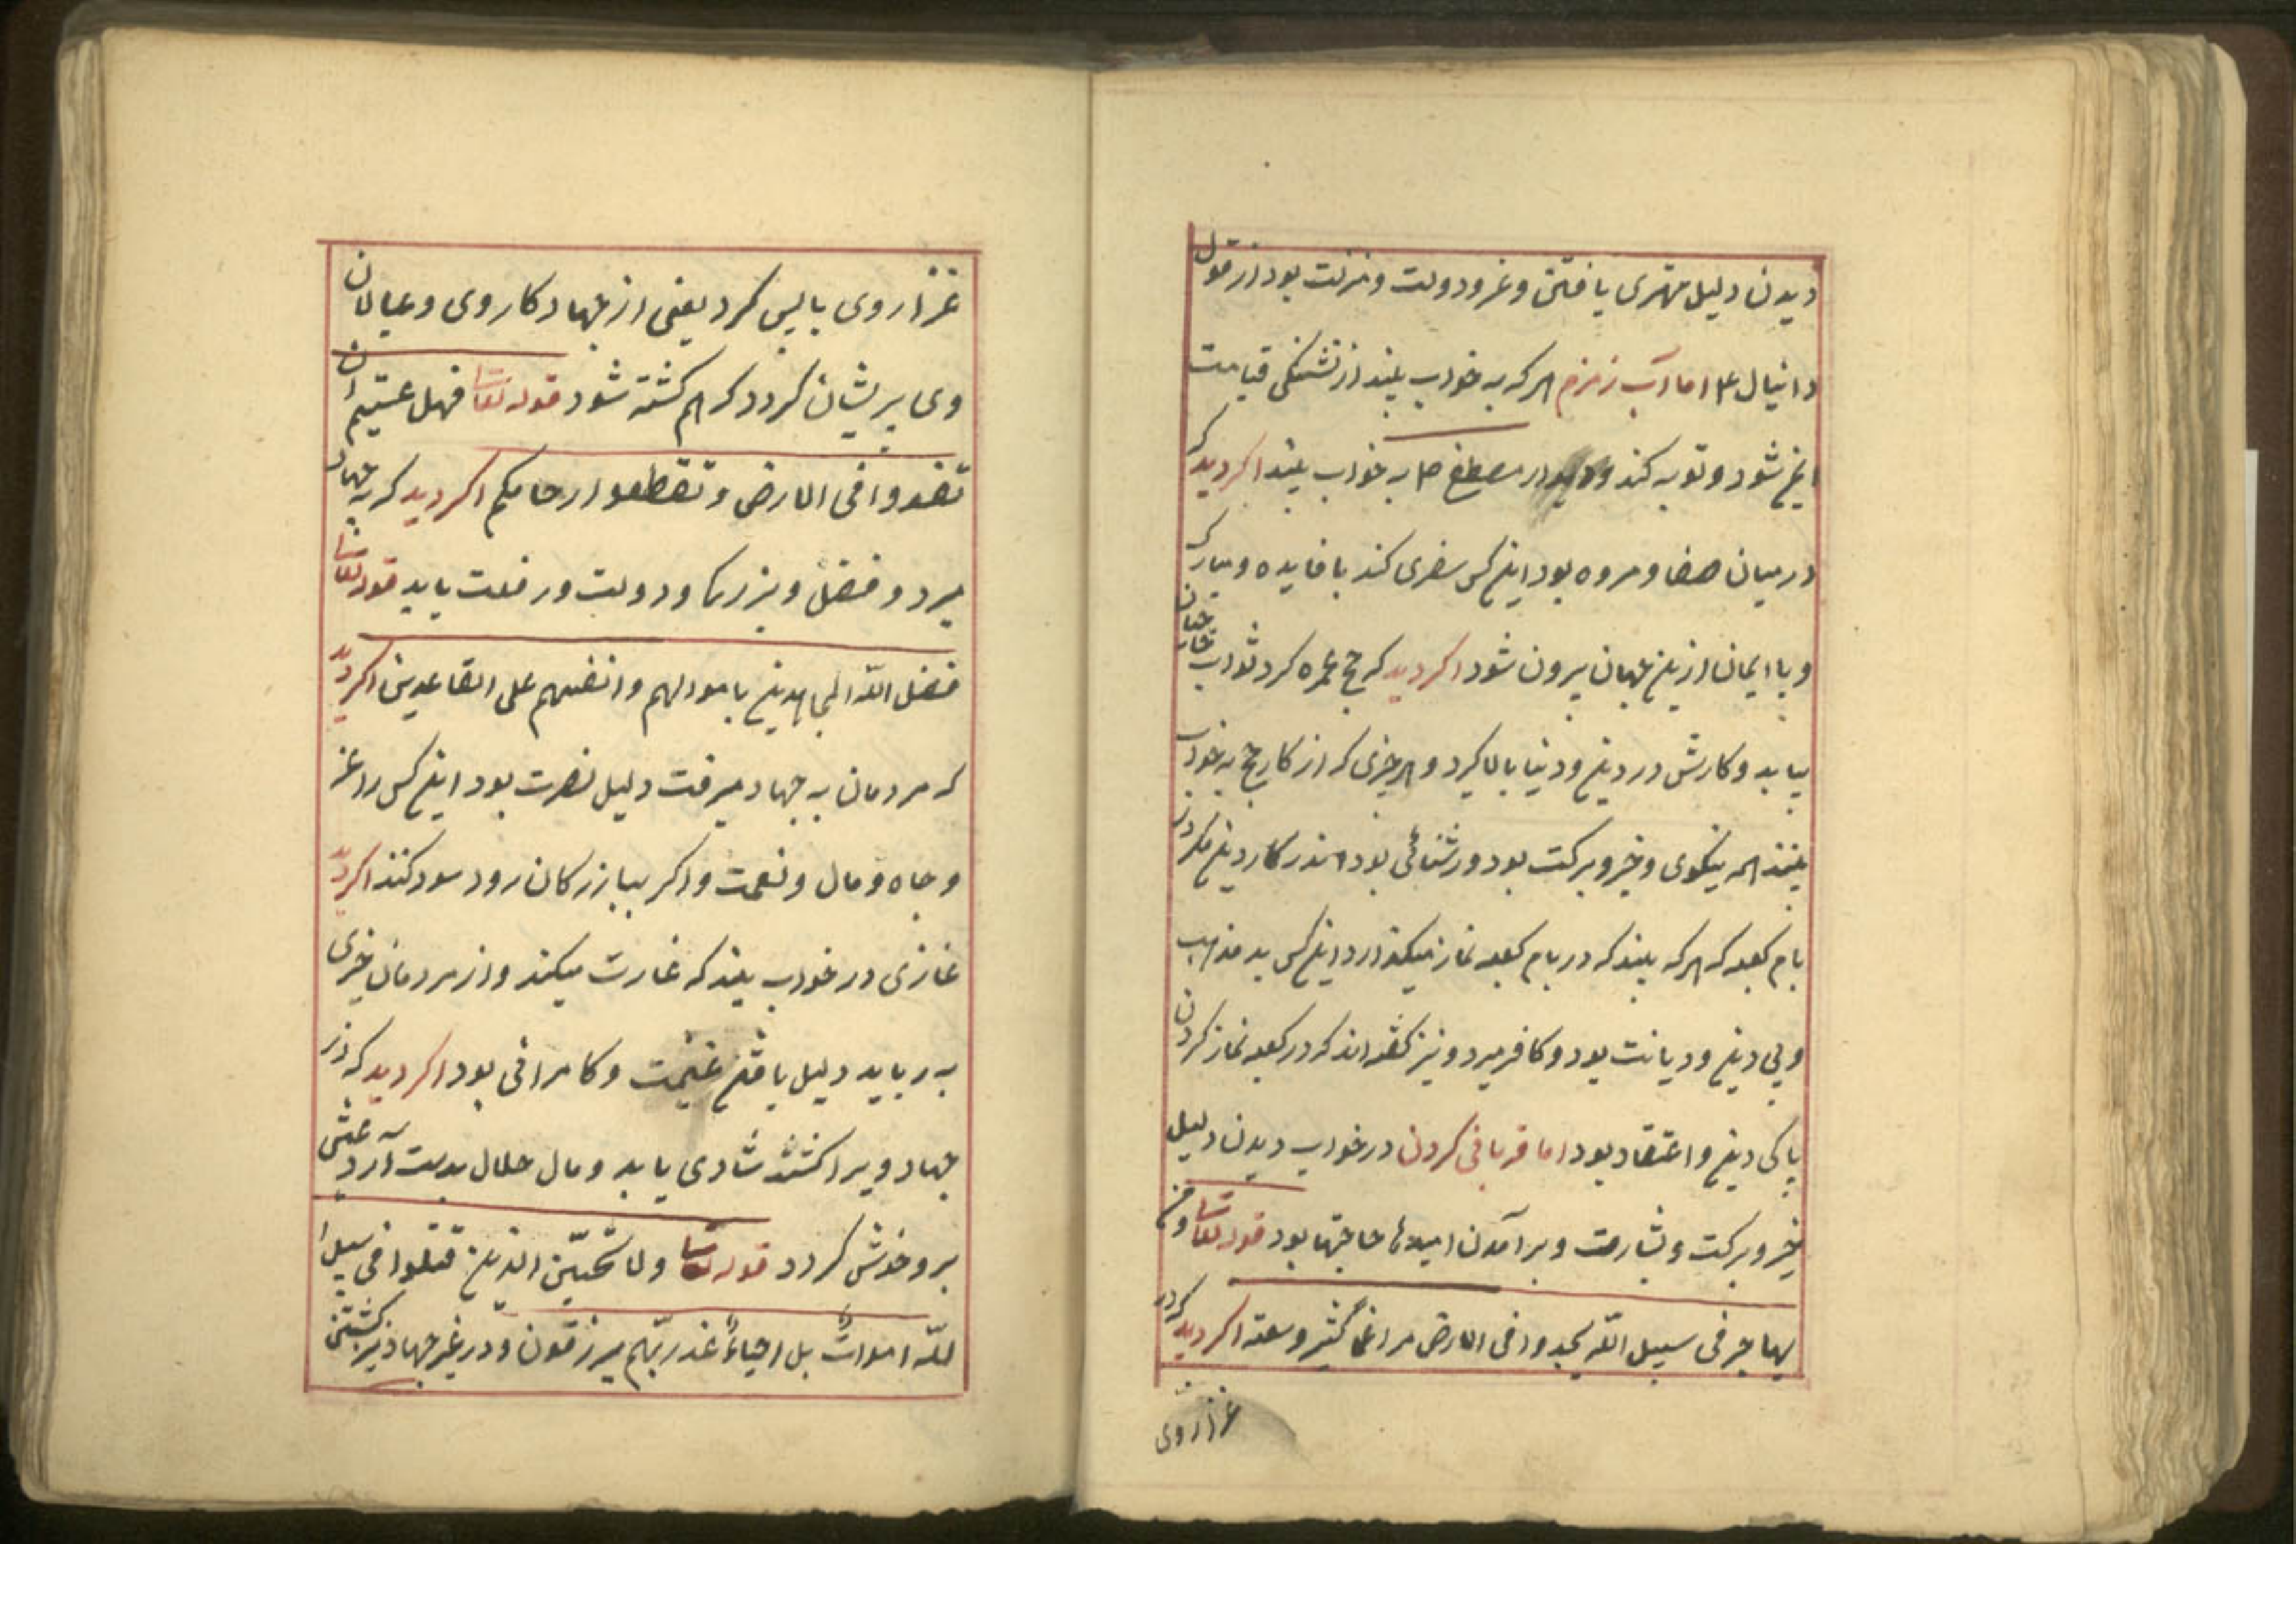 دیدن دلیل مهتری یافتن و عز و دولت و منزلت بود از قول
دانیال ع اما آب زمزم هر که به خواب بیند از تشنکی قیامت
ایمن شود و توبه کند و مصطفی ص به خواب بیند اکر دید که
در میان صفا و مروه بود این کس سفری کند با فایده و مبارک
و با ایمان از ین جهان بیرون شود اکر دید که حج عمره کرد ثواب
بیابد و کارش در دین و دنیا بالا کیرد و هر چیزی که از کار حج به خواب
بینند همه نیکوی و خیر و برکت بود و روشنائی بود اندر کار دین مکر در
بام کعبه که هر که بیند که در بام کعبه نماز میکذارد این کس بد مذهب
و بی دین و دیانت بود و کافر میرد و نیز کفته اند که در کعبه نماز کردن
پاکی دین و اعتقاد بود اما قربانی کردن در خواب دیدن دلیل
خیر و برکت و بشارت و برآمدن امیدها حاجتها بود قوله تعا و من
یهاجر فی سبیل الله یجد و افی الارض مراغماً کثیر وسعته اکر دید که در
غزا روی
غزا روی باپس کرد یعنی از جهاد کار وی و عیالان
وی پریشان کردد کر هم کشته شود قوله تعا فهل عستیم ان
تفسدوا فی الارض و تقطعوا ارحامکم اکر دید کر به جهاد
میرد و فضل و بزرکی و دولت و رفعت یابد قوله تعا
فضل الله المجاهدین باموالهم و انفسهم علی القاعدین اکر دید
که مردمان به جهاد میرفت دلیل نصرت بود این کس را عز
و جاه و مال و نعمت و اکر ببازرکان رود سود کند اکر دید
غازی در خواب بیند که غارت میکند و از مردمان چیزی
به رباید دلیل یافتن غنیمت و کامرانی بود اکر دید که در
جهاد ویرا کشتند شادی یابد و مال حلال بدست آرد عیش
بر و خوش کردد قوله تعا ولا تحسبّن الذین قتلوا فی سبیل ا
لله امواتٌ بل احیاءٌ عند ربّهم یرزقون و در غیر جهاد نیز کشتن